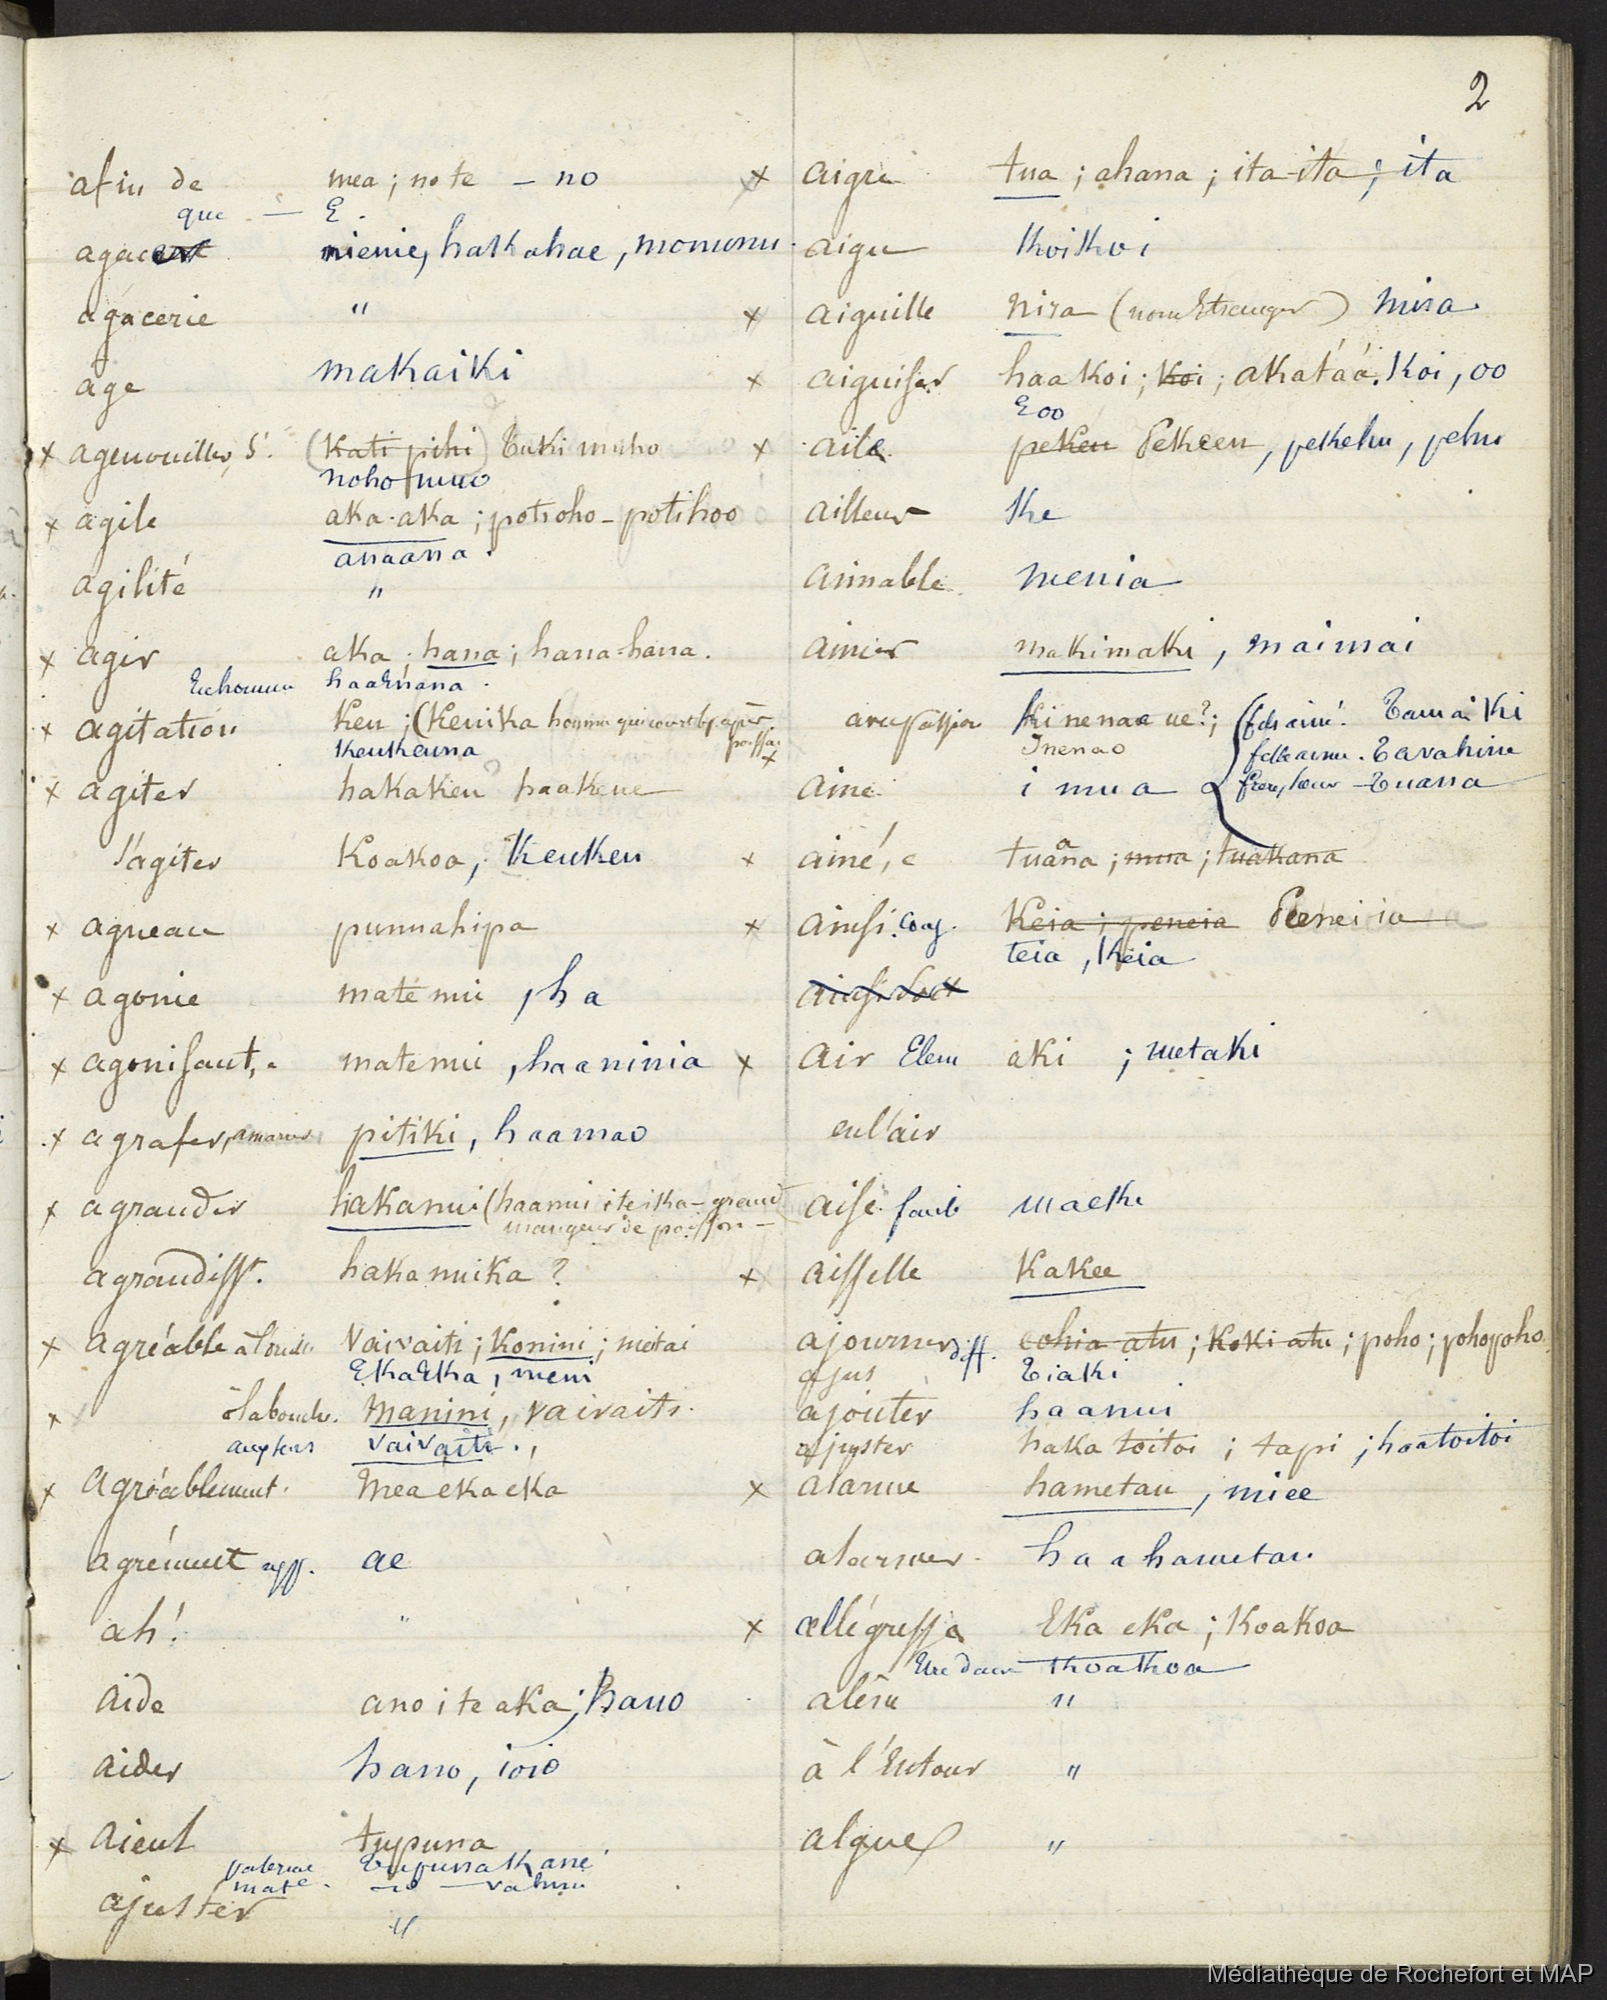 2
afin de mea ; no te — no
que — E.
agacer nienie, hakahae, monunu.
agacerie "
age makaiki
x agenouiller, s'. (kati pihi) Tuki muho
noho muo
x agile aka-aka ; potioho - potihoo
anaana.
agilité "
x agir aka ; hana ; hana-hana.
haahana.
x agitation keu ; (keuika
keukeuna
x agiter hakakeu haakeue
s'agiter koakoa, keukeu
x agneau punuahipa
x agonie matemui, ha
x agonisant, e matemui, haaninia
x agrafer, amarrer pitiki, haamao
x agrandir hakanui (haanui iteika - grand
mangeur de poisson —
agrandisst. hakanuika ?
x agréable à l'ouie. vaivaiti ; konini ; metai
Ekaeka, meni
x à la bouche. manini, vaivaiti.
vaivaiti.,
x agréablement. mea ekaeka
agrément aff. ae
ah! "
aide ano i te aka ; hano
aider hano, ioio
x aieul tupuna
paterne Tupunakane
mate. —o— vahine
ajuster "
x aigri tua ; ahana ; ita-ita ; ita
aigu koikoi
x aiguille nira (nom Etranger) nira.
x aiguiser haakoi ; koi ; akatáá. koi, oo
E oo
x aile pekeu Pekeeu, pekehu, pehu
ailleurs ke
aimable menia
aimer makimaki, maimai
avec passion hinenao ue? ; (fils ainé. Tama ki
Inenao fille ainée. Tavahine
ainé i mua frere, sœur — Tuana
x ainé, e tuana ; mua ; tuakana
x ainsi. conj. keia ; peneia Peenei ia
teia, keia
x air Elem aki ; metaki
en l'air
aise maeke
x aisselle kakee
ajourner diff. eohia atu ; koki atu ; poho ; pohopoho
ajus Tiaki
ajouter haanui
ajuster haka toitoi ; tapi ; haatoitoi
x alarme hametau, miee
alarmer. haahametau.
x allégresse Eka eka ; koakoa
Etre dans koakoa
alêne "
à l'Entour "
algue "
Médiathèque de Rochefort et MAP